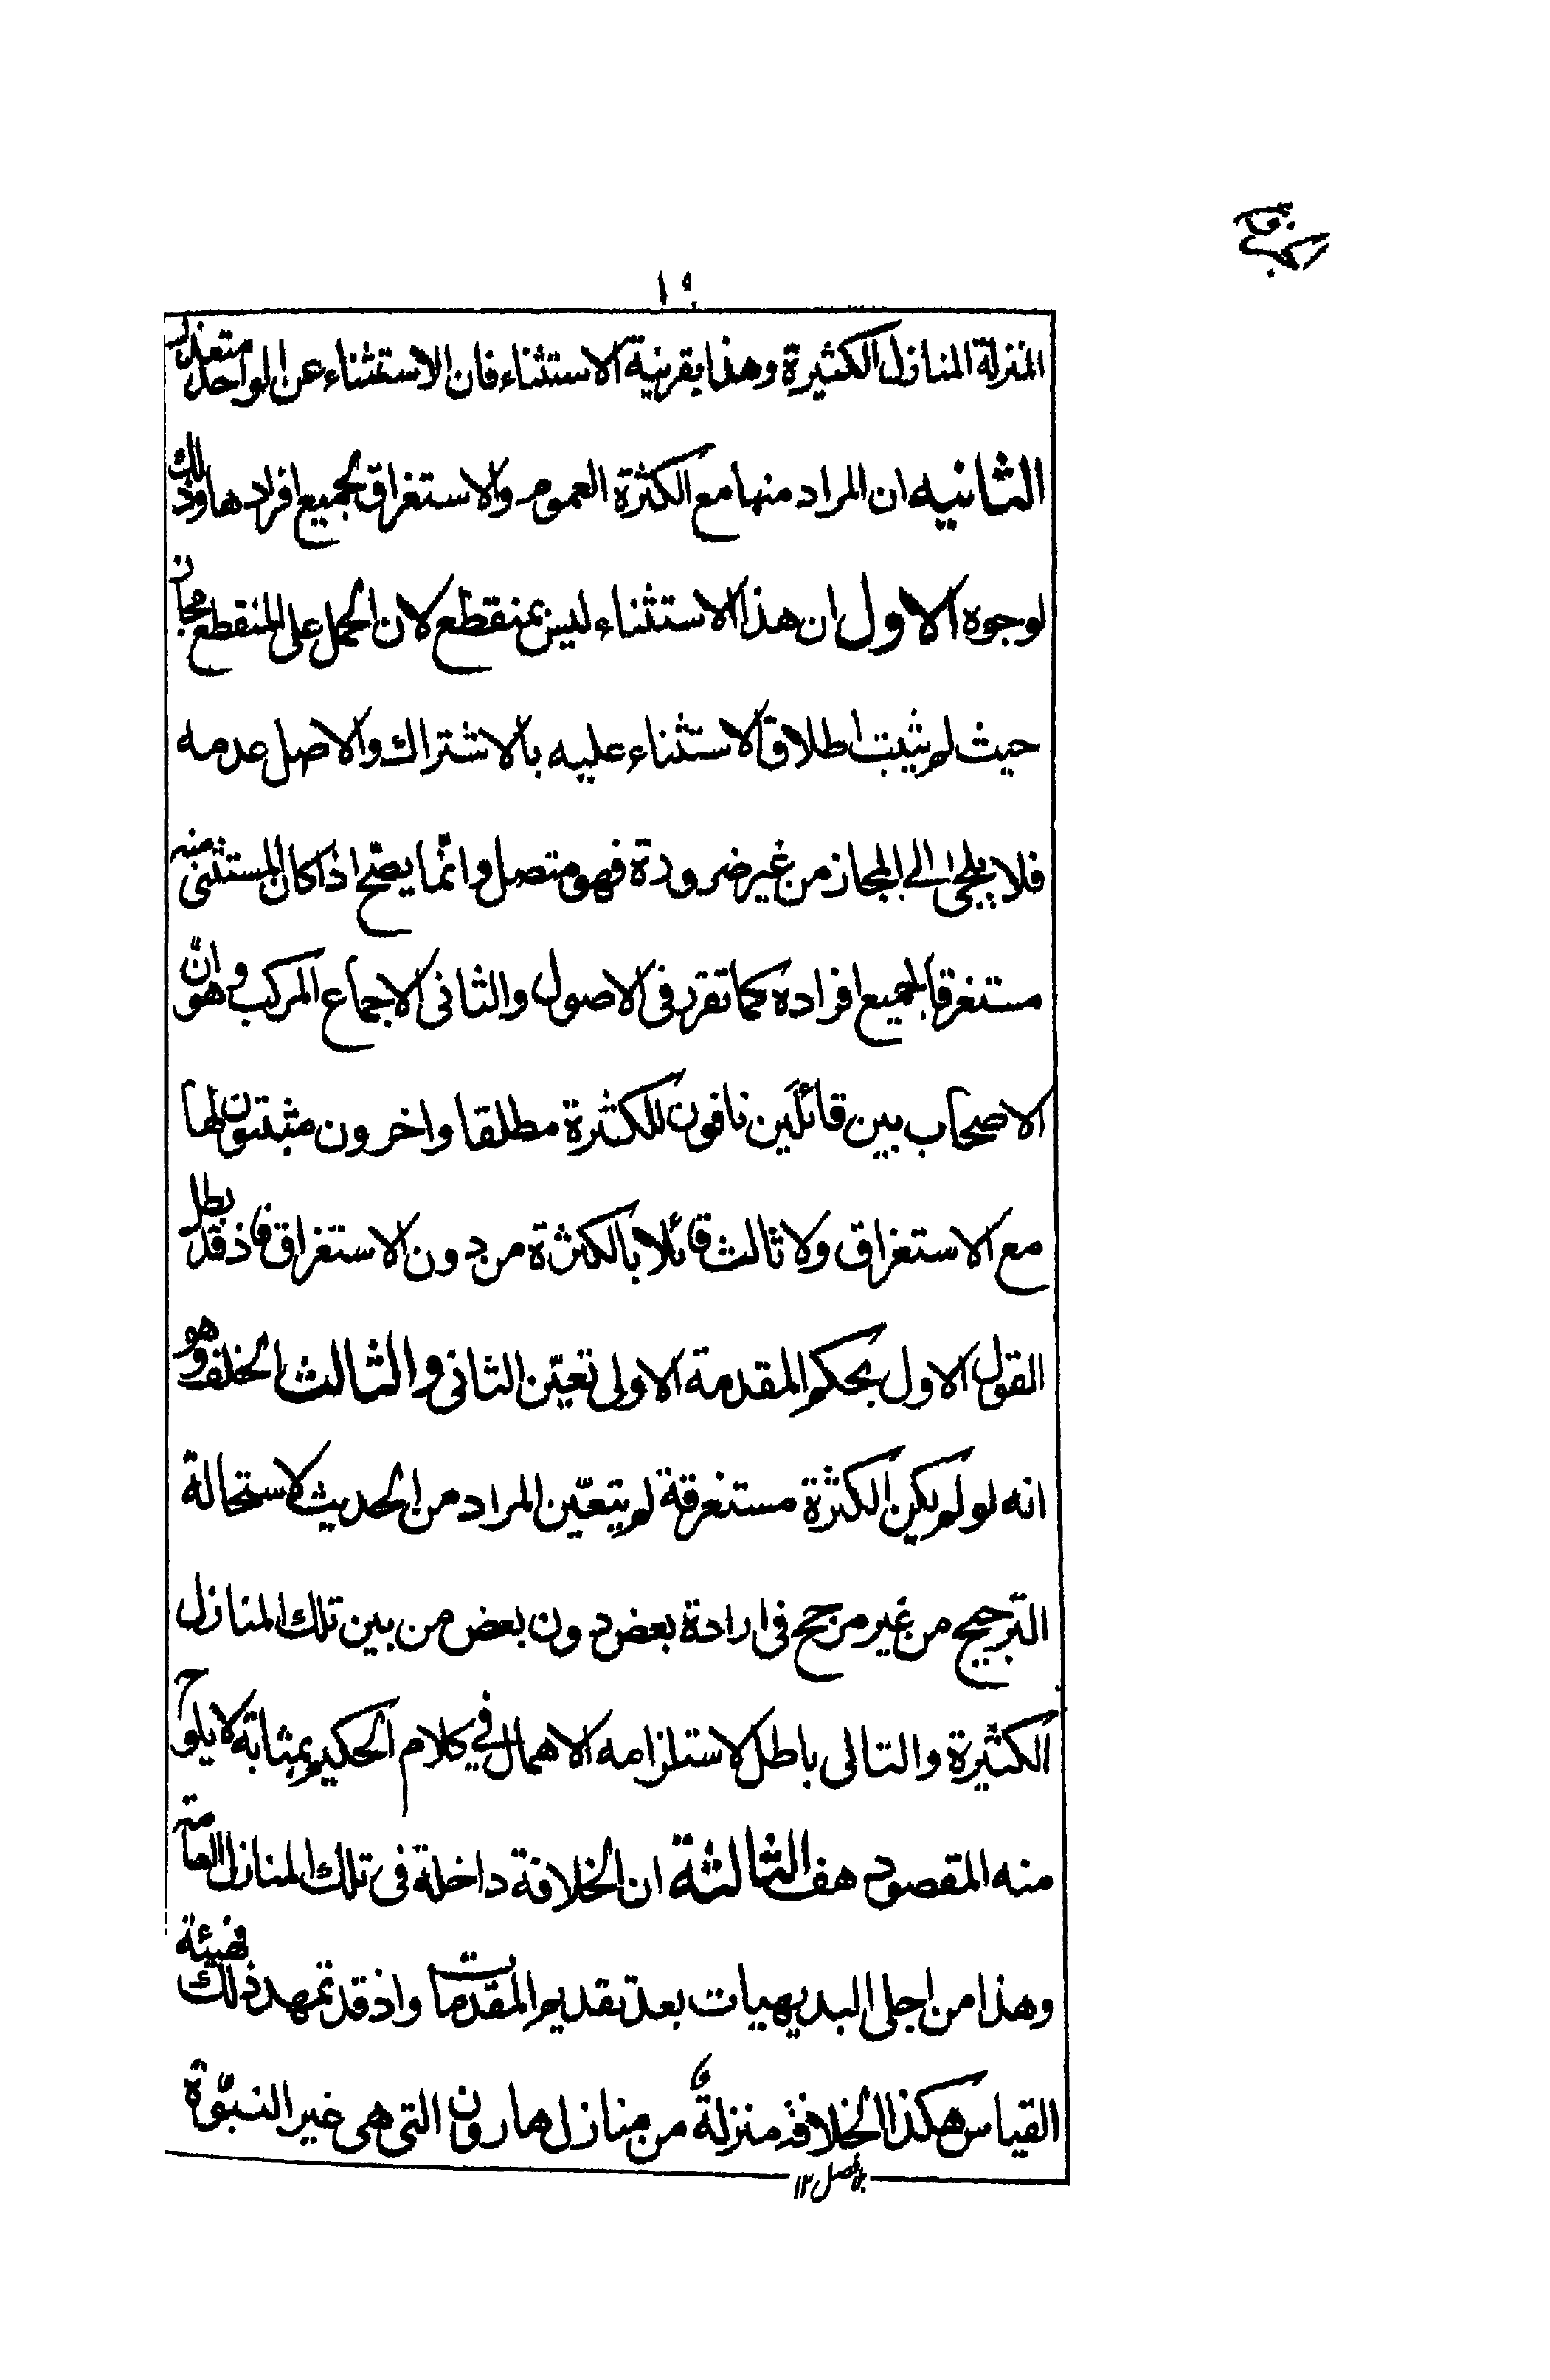 ١٩
المنزلة المنازل الكثيرة وهذا بقرنية الاستثناء فان الاستثناء عن الواحد متعذر
الثانيه ان المراد منها مع الكثرة العموم والاستغراق لجميع افرادها وذلك
لوجوه الاول ان هذا الاستثناء ليس بمنقطع لان الحمل على المنقطع مجاز
حيث لم يثبت اطلاق الاستثناء عليه بالاشتراك والاصل عدمه
فلا يلجئ الى المجاز من غير ضرورة فهو متصل وانّما يصّح اذا كان المستثنى منه
مستغرقا لجميع افراده كما تقرر فى الاصول والثانى الاجماع المركب وهو انّ
الاصحاب بين قائلَين نافون للكثرة مطلقا واخرون مثبتون لها
مع الاستغراق ولا ثالث قائلا بالكثرة من دون الاستغراق فاذ قد بطل
القول الاول بحكم المقدمة الاولى تعيّن الثانى والثالث الخلف وهو
انه لو لم يكن الكثرة مستغرقة لم يتعيّن المراد من الحديث لاستحالة
الترجيح من غير مرجح فى ارادة بعض دون بعض من بين تلك المنازل
الكثيرة والتالى باطل لاستلزامه الاهمال في كلام الحكيم بمثابة لا يلوح
منه المقصود هف الثالثة ان الخلافة داخلة فى تلك المنازل العامة
وهذا من اجلى البديهيات بعد تقديم المقدمات واذ قد تمهد ذلك فهيئة
القياس هكذا الخلافة منزلةٌ من منازل هارون التى هى غير النبّوة